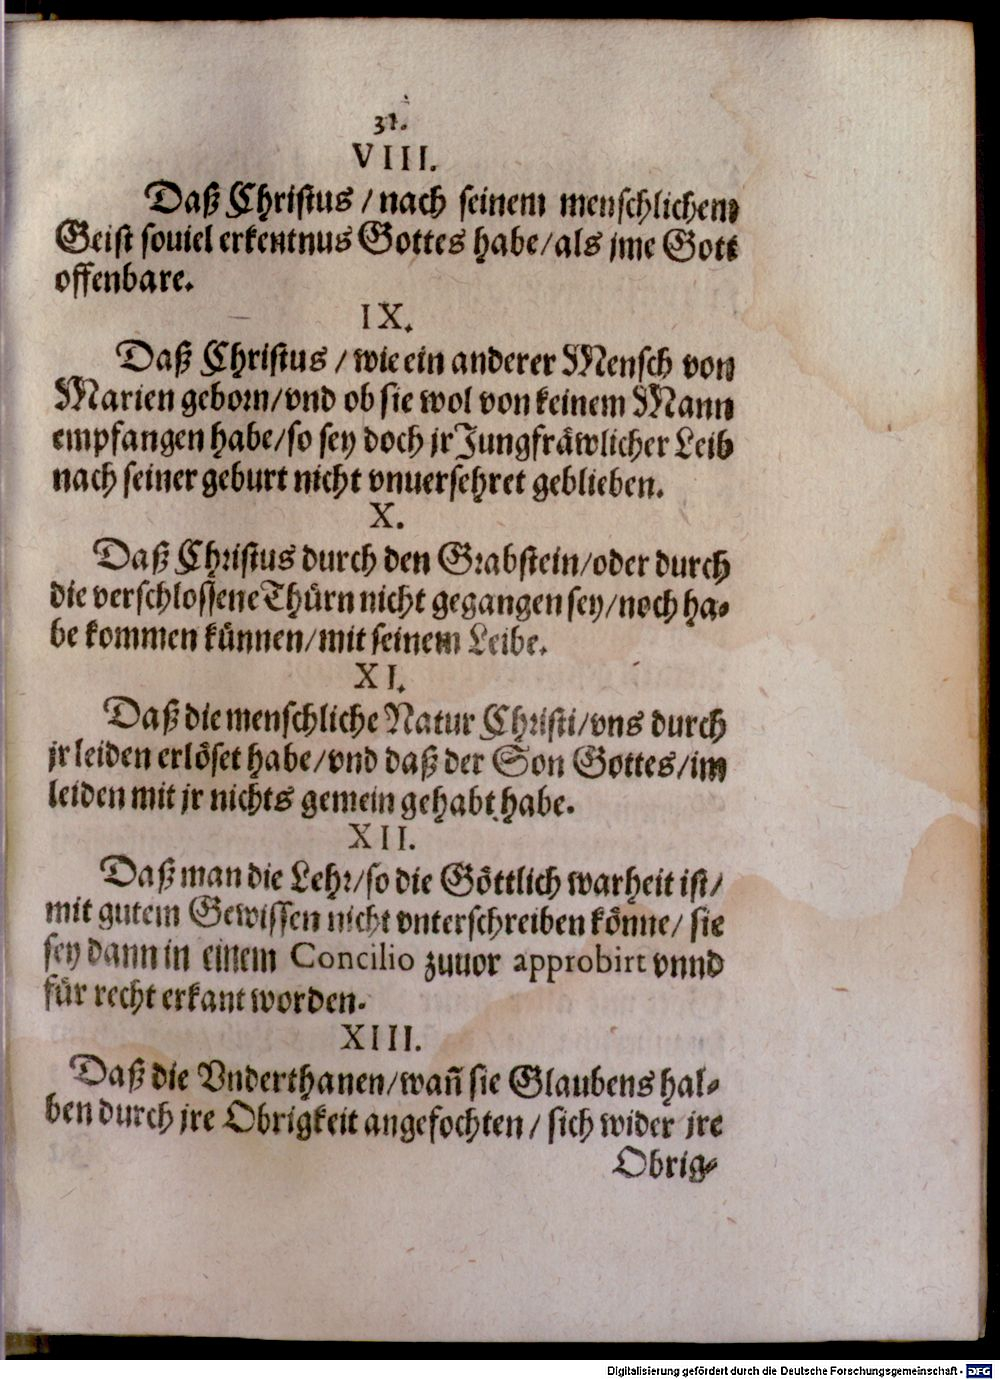 31.
VIII.
Daß Christus / nach seinem menschlichem
Geist souiel erkentnus Gottes habe/als jme Gott
offenbare.
IX.
Daß Christus / wie ein anderer Mensch von
Marien geborn/vnd ob sie wol von keinem Mann
empfangen habe/so sey doch jr Jungfräwlicher Leib
nach seiner geburt nicht vnuersehret geblieben.
X.
Daß Christus durch den Grabstein/oder durch
die verschlossene Thürn nicht gegangen sey/noch ha-
be kommen künnen/mit seinem Leibe.
XI.
Daß die menschliche Natur Christi/vns durch
jr leiden erlöset habe/vnd daß der Son Gottes/im
leiden mit jr nichts gemein gehabt habe.
XII.
Daß man die Lehr/so die Göttlich warheit ist/
mit gutem Gewissen nicht vnterschreiben könne/ sie
sey dann in einem Concilio zuuor approbirt vnnd
für recht erkant worden.
XIII.
Daß die Vnderthanen/wañ sie Glaubens hal-
ben durch jre Obrigkeit angefochten / sich wider jre
Obrig-
Digitalisierung gefördert durch die Deutsche Forschungsgemeinschaft - DFG